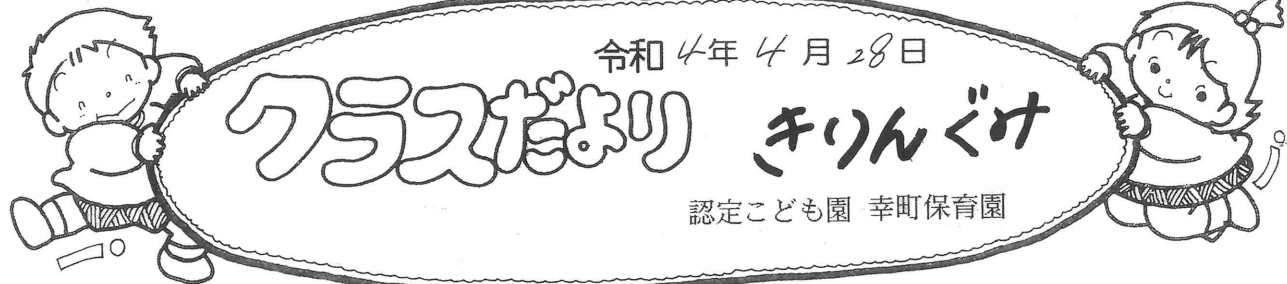 令和4年4月28日
クラスだより きりんぐみ
認定こども園 幸町保育園